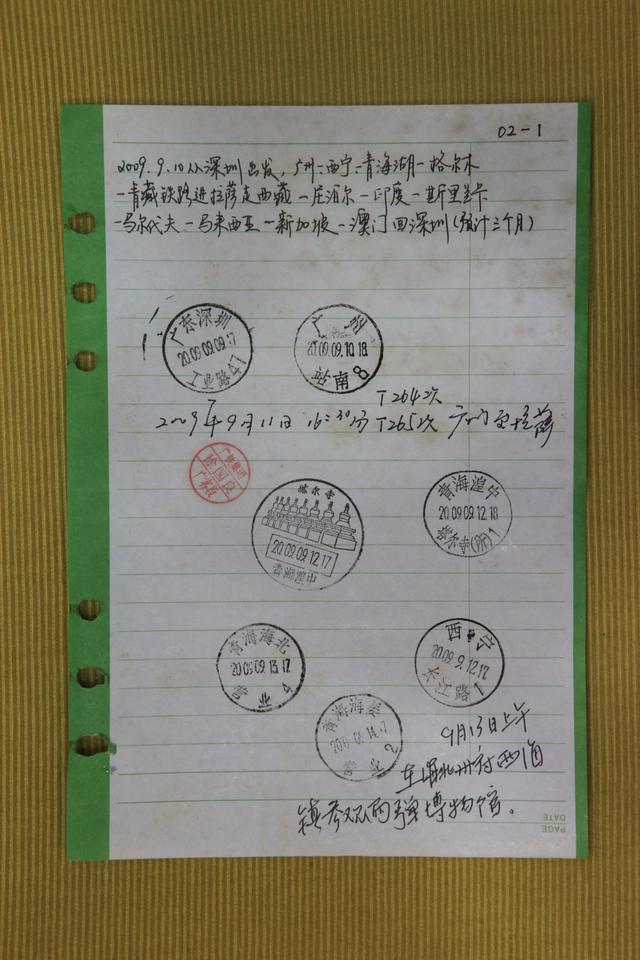 02-1
2009.9.10从深圳出发,广州-西宁-青海湖-格尔木
-青藏铁路进拉萨走西藏-庄泊尔-印度-斯里兰卡
-马尔代夫-马来西亚-新加坡-澳门回深圳(预计三个月)
广东深圳
2009.09.09.17
工业路47
广州
2009.09.10.18
站南8
T264次
2009年9月11日 16:30分 T265次 广州至拉萨
徐国良
塔尔寺
2009.09.12.17
青海湟中
青海湟中
2009.09.12.18
塔尔寺(所)1
青海海北
2009.09.13.17
营业4
西宁
2009.9.12.17
长江路1
青海海晏
2
9月13日上午
在海北州府西海
镇参观原子弹博物馆。
PAGE
DATE